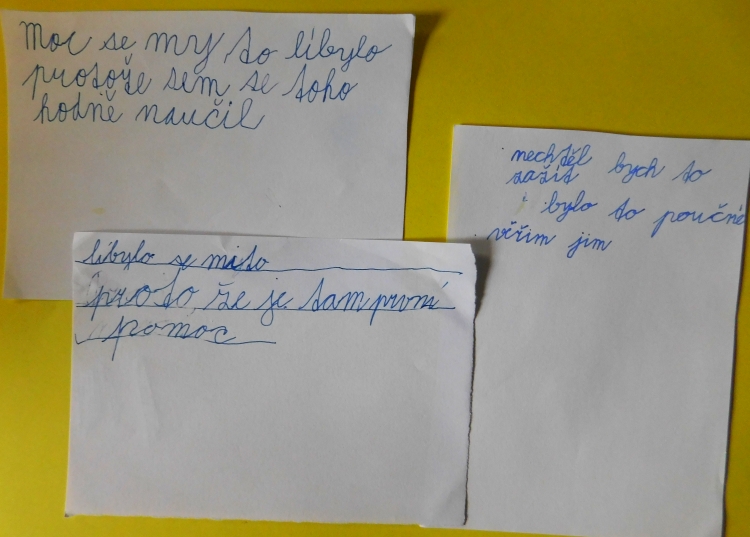 Moc se my to líbylo
protože sem se toho
hodně naučil
nechtěl bych to
zažít
bylo to poučné
věřim jim
líbylo se mito
proto že je tam první
pomoc